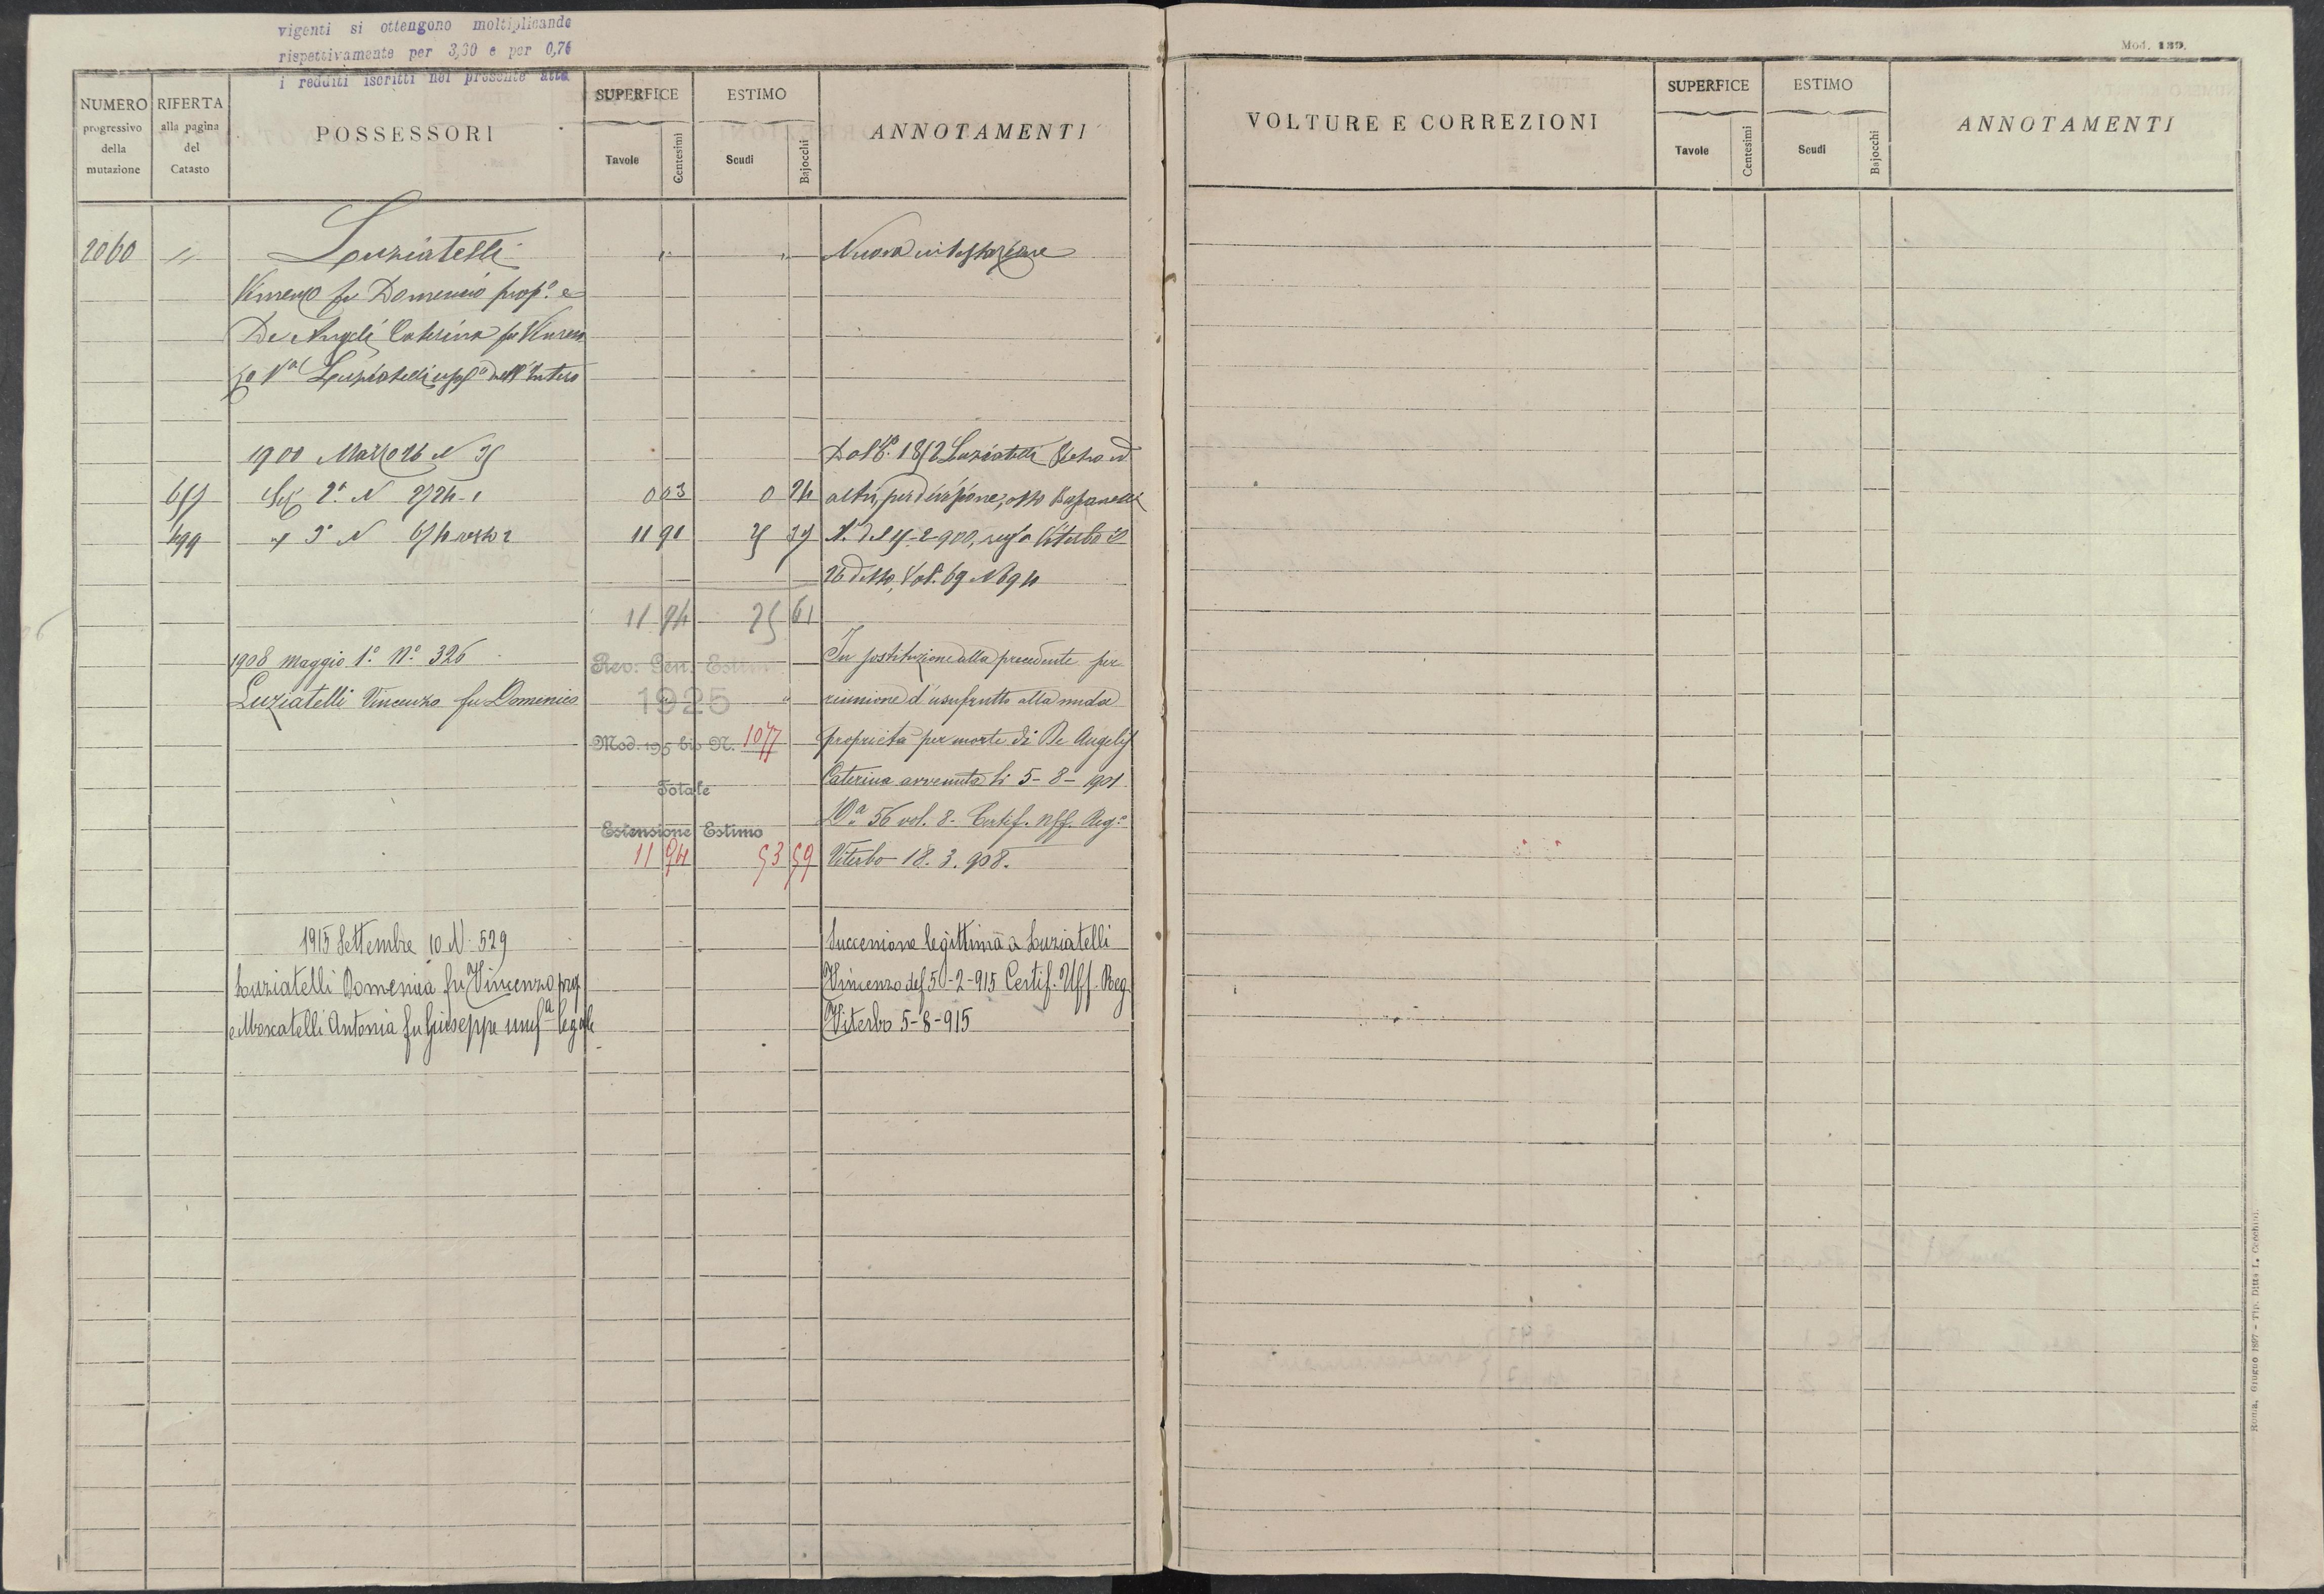 vigenti si ottengono moltiplicando
rispettivamente per 3,30 e per 0,76
i redditi iscritti nel presente atto
NUMERO progressivo della mutazione
RIFERTA alla pagina del Catasto
POSSESSORI
SUPERFICE
Tavole
Centesimi
ESTIMO
Scudi
Bajocchi
ANNOTAMENTI
2060 " Luziatelli " " Nuova intestazione
Vincenzo fu Domenico prop.º e
De Angeli Caterina fu Vincen
zo Vª Luziatelli usufª dell'intero
1900 Marzo 26 N 35
Dal Nº 1852 Luziatelli Pietro ed
657 Sez 2ª N 2724-1 0 03 0 24 altri, per divisione, atto
499 " 3ª N 11 91 25 37 N. del 2-900, reg.º Viterbo il
26 detto, Vol. 69 N 694
11 94 25 61
1908 Maggio 1º Nº 326
In sostituzione alla precedente per
Luziatelli Vincenzo fu Domenico " "
riunione d'usufrutto alla nuda
Rev: Gen. Estim
1925
Mod. 195 bis N. 1077
proprietà per morte di De Angelis
Caterina avvenuta li 5-8-1901
Totale
Dª 56 vol. 8- Certif. Uff. Regº
Estensione Estimo
11 94 53 59
Viterbo 18.3.908.
1915 Settembre 10 N. 529
Successione legittima a Luziatelli
Luziatelli Domenica fu Vincenzo prop
Vincenzo del 50-2-915 Certif. Uff. Reg.
e Moscatelli Antonia fu Giuseppe usufª legale
Viterbo 5-8-915
Mod. 139.
VOLTURE E CORREZIONI
SUPERFICE
Tavole
Centesimi
ESTIMO
Scudi
Bajocchi
ANNOTAMENTI
Roma, Giugno 1897 - Tip. Ditta L. Cecchini.